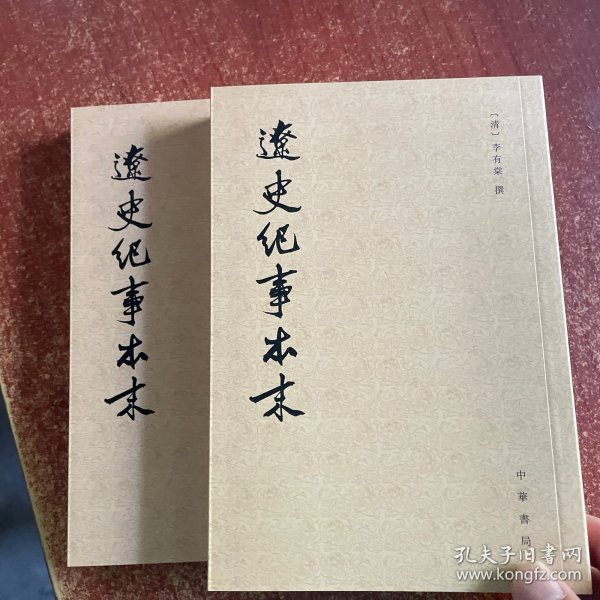 遼史紀事本末
遼史紀事本末
〔清〕李有棠 撰
中華書局
孔夫子旧书网
www.kongfz.com